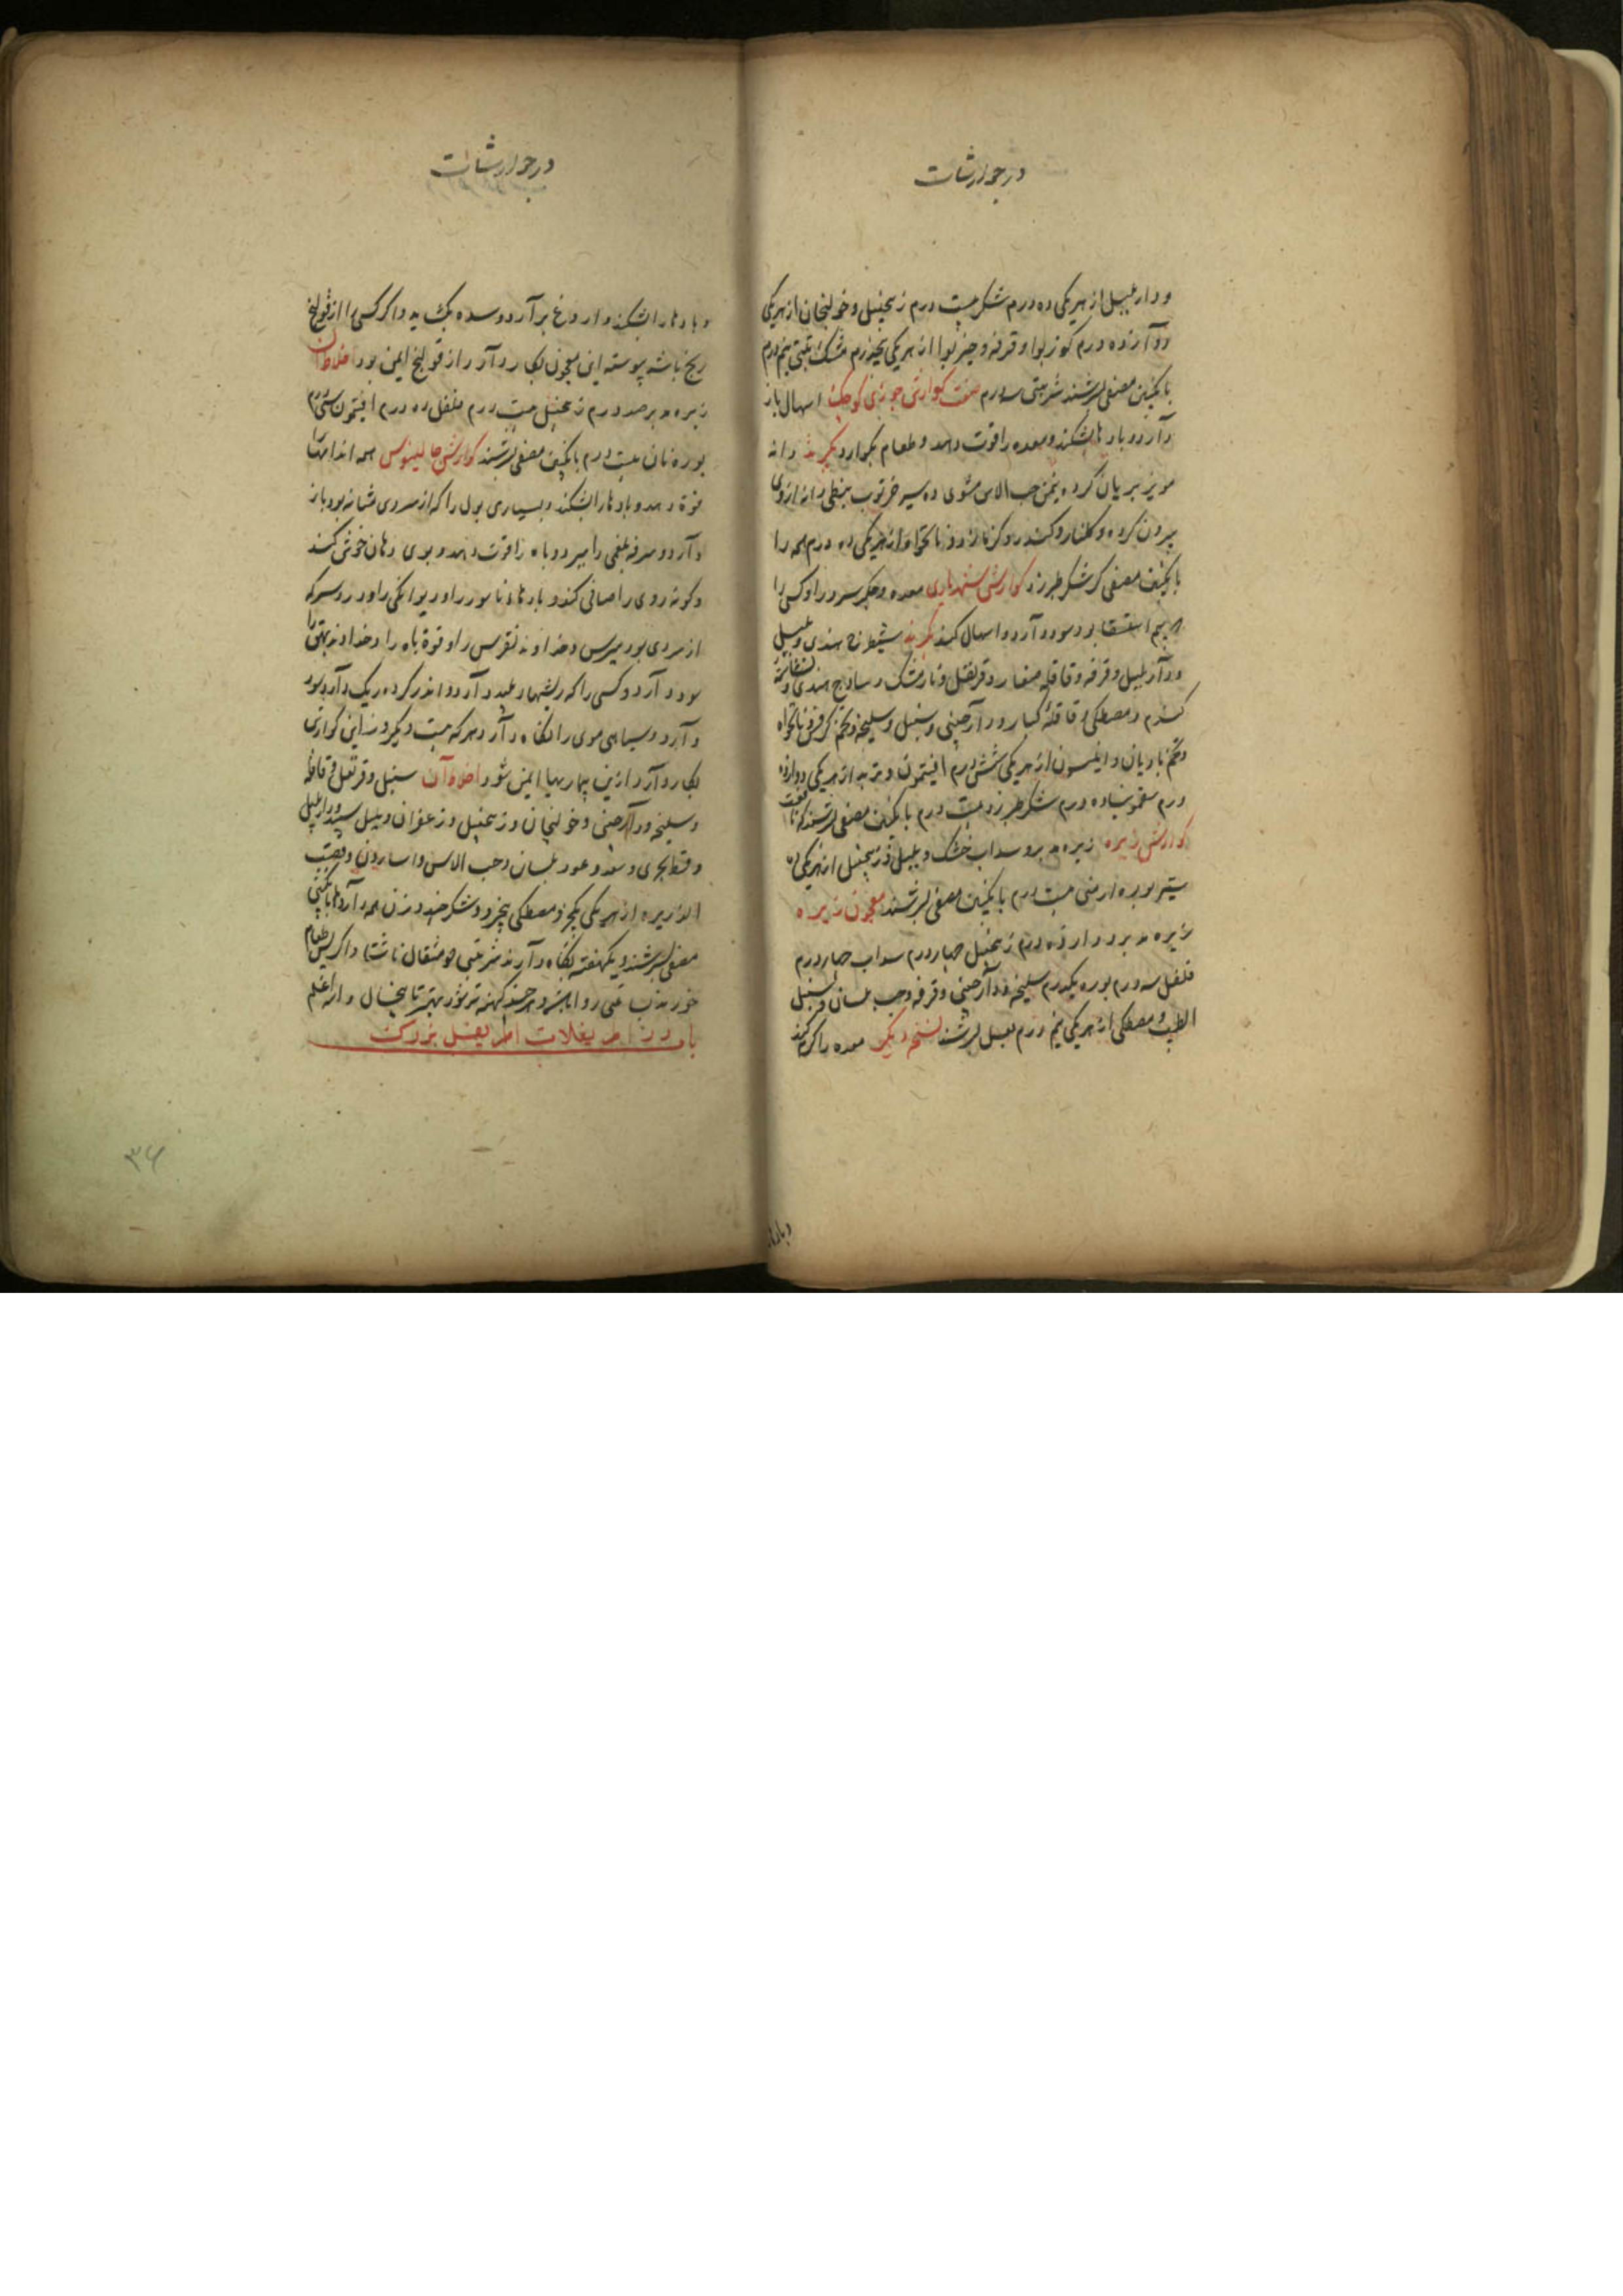 در جوارشات
و دار بلبل از هر یکی ده درم شکر بیست درم زنجبیل و خولنجان از هر یکی
دوآزده درم کوزبوا و قرفه و خیربوا از هر یکی پنجدرم مشک تبتی نیم درم
بانگبین مصفی بسرشند شربتی سه درم صفت کوارش جوزی کوچک اسهال باز
دآرد و بادها بشکند و معده را قوت دهد و طعام بکوارد بکیرند دانه
مویز بریان کرده بیخته حب الاس مشوی ده سیر خرنوب نبطی دانه ازوی
بیرون کرده و کلنار و کندر و کزمازو و نانخواه از هر یکی ده درم همه را
بانگبین مصفی کر شکر طبرزد کوارش شهریاری معده و جکر سرد را و کسی را
که بیم استسقا بود سود دآرد و اسهال کند بکیرند شیطرج هندی و بلبل
ودآر بلبل و قرفه و قاقله صغار و قرنفل و نارمشک و سادج هندی و نشاسته
کندم و مصطکی و قاقله کبار و دارچینی و سنبل و سلیخه و تخم کرفس و نانخواه
و تخم بادیان و انیسون از هر یکی شش درم افتیمون و تربد از هر یکی دوازده
درم سقمونیا ده درم شکر طبرزد بیست درم بانگبین مصفی بسرشند
کوارش زیره زیره مدبر و سداب خشک و بلبل و زنجبیل از هر یکی ده
ستیر بوره ارمنی بیست درم بانگبین مصفی بسرشند معجون زیره
زیره مدبر دوازده درم زنجبیل چهار درم سداب چهار درم
فلفل سه درم بوره یکدرم سلیخه و دآرچینی و قرفه و حب بلسان و سنبل
الطیب و مصطکی از هر یکی نیم درم بعسل بسرشند نسخه دیگر معده را گرم کند
وبادها
در جوارشات
و بادها را بشکند و اروغ برآرد و سده بکشاید و اکر کسی را از قولنج
رنج باشد پیوسته این معجون بکار دآرد از قولنج ایمن بود اخلاط آن
زیره مدبر صد درم زنجبیل بیست درم فلفل ده درم افتیمون سی درم
بوره نان بیست درم بانگبین مصفی بسرشند کوارش جالینوس همه اندامها را
قوة دهد و بادها را بشکند و بسیاری بول را که از سردی مثانه بود باز
دآرد و سرفه بلغمی را ببرد و باه را قوت دهد و بوی دهان خوش کند
و کونه روی را صافی کند و بادهاء ناسور را و دیوانکی را و درد سر که
از سردی بود و برص و خداوند نقرس را و قوة باه را و خداوند بهق را
سود دآرد و کسی را که ریشها و بلید دآرد و اندر کرده ریک دآرد سود
دآرد و سیاهی موی را نکاه دآرد و هر که بیست و یک روز این کوارش
بکار دآرد ازین بیماریها ایمن شود اخلاط آن سنبل و قرنفل و قاقله
و سلیخه و دآرچینی و خولنجان و زنجبیل و زعفران و بلبل سپید و دار بلبل
و قسط بحری و سعد و عود بلسان و حب الاس و اسارون و قصب
الذریره از هر یکی یکجزو مصطکی پنجزو و شکر چند وزن همه دآروها بانگبین
مصفی بسرشند و یکهفته نکاه دآرند شربتی دو مثقال ناشتا و اکر پس طعام
خورند شب شبی روا باشد و هر چند کهنه تر شود بهتر تا پنج سال والله اعلم
باب در اطریفلات اطریفل بزرک
۳۶